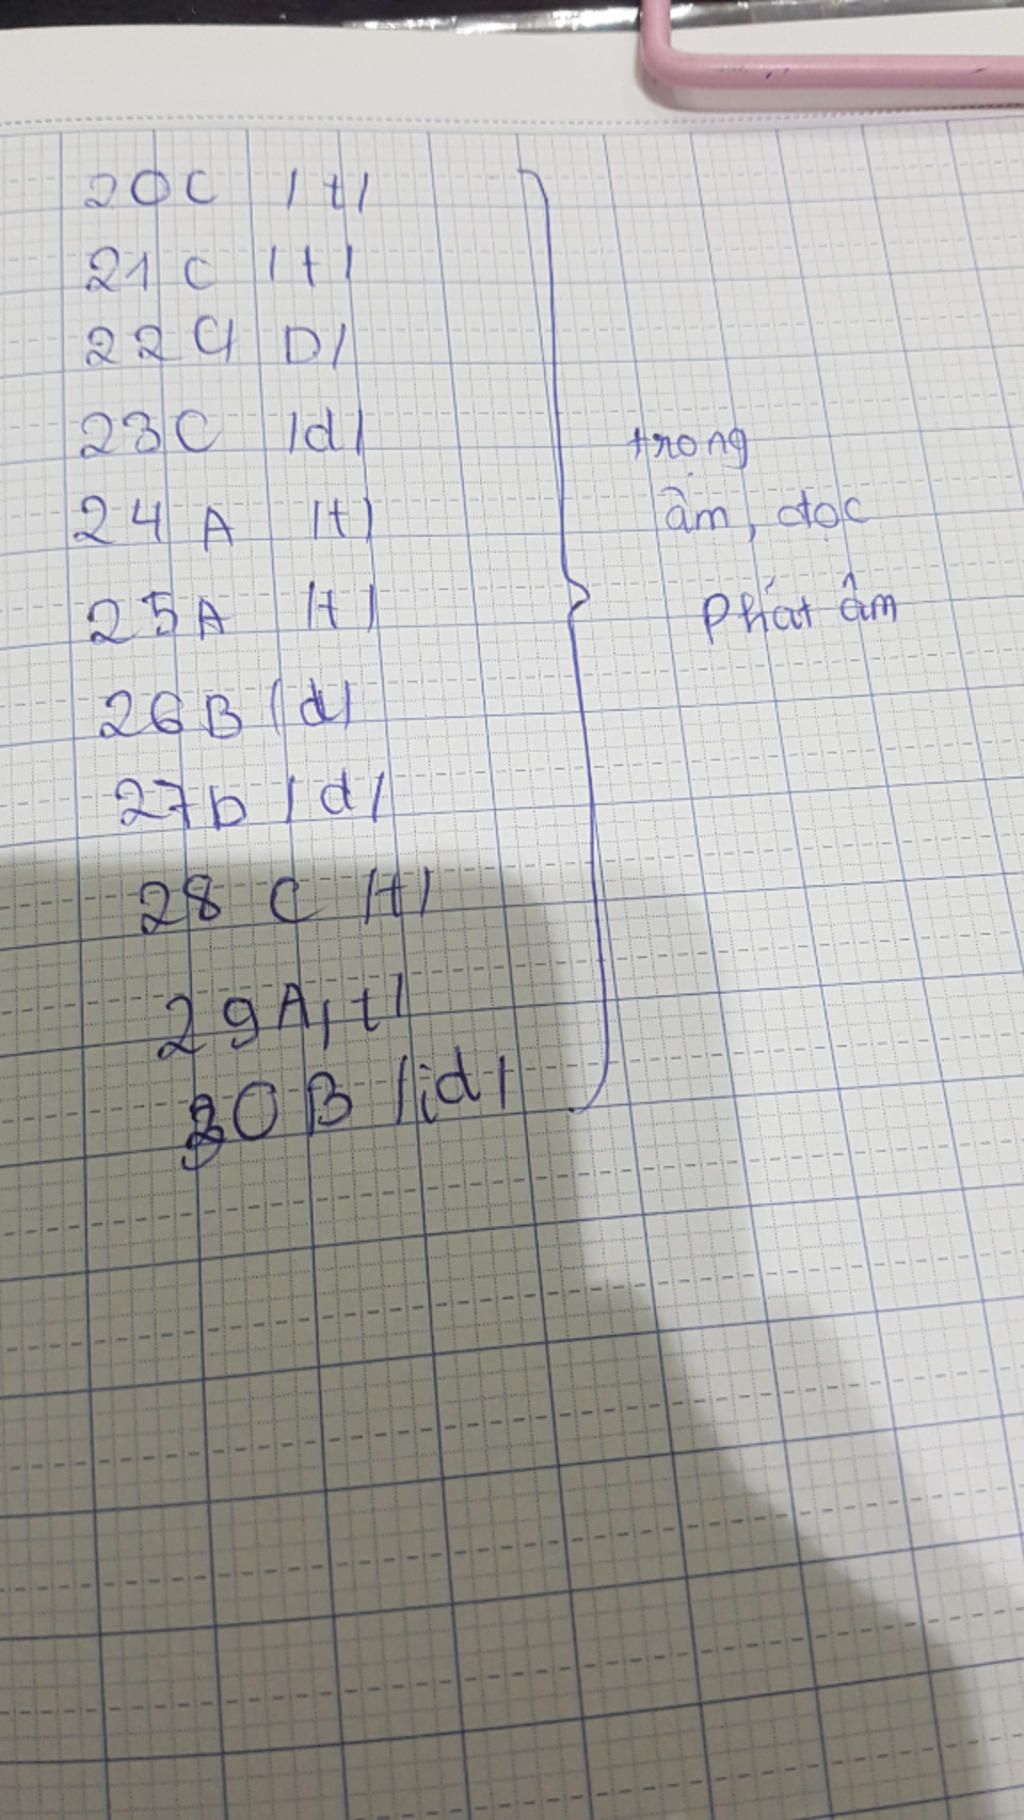 20C /t/
21 C /t/
22 C/ D/
23C /d/
24 A /t/
25A /t/
26B /d/
27b /d/
28 C /t/
29A, t/
30B /id/
trọng
âm, đọc
phát âm